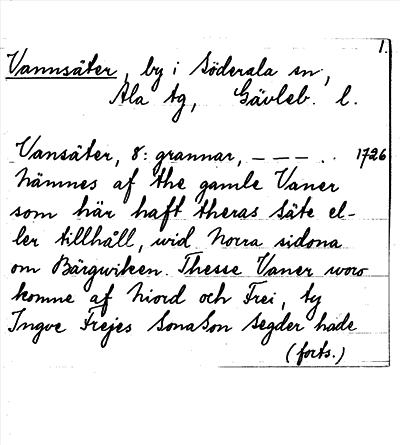 1.
Vannsäter, by i Söderala sn,
Ala tg, Gävleb. l.
Vansäter, 8: grannar, – – – . . 1726
nämnes af the gamle Vaner
som här haft theras säte el-
ler tillhåll, wid Norra sidona
om Bärgwiken. Thesse Vaner woro
komne af Niord och Frei, ty
Ingve Frejes SonaSon segder hade
(forts.)